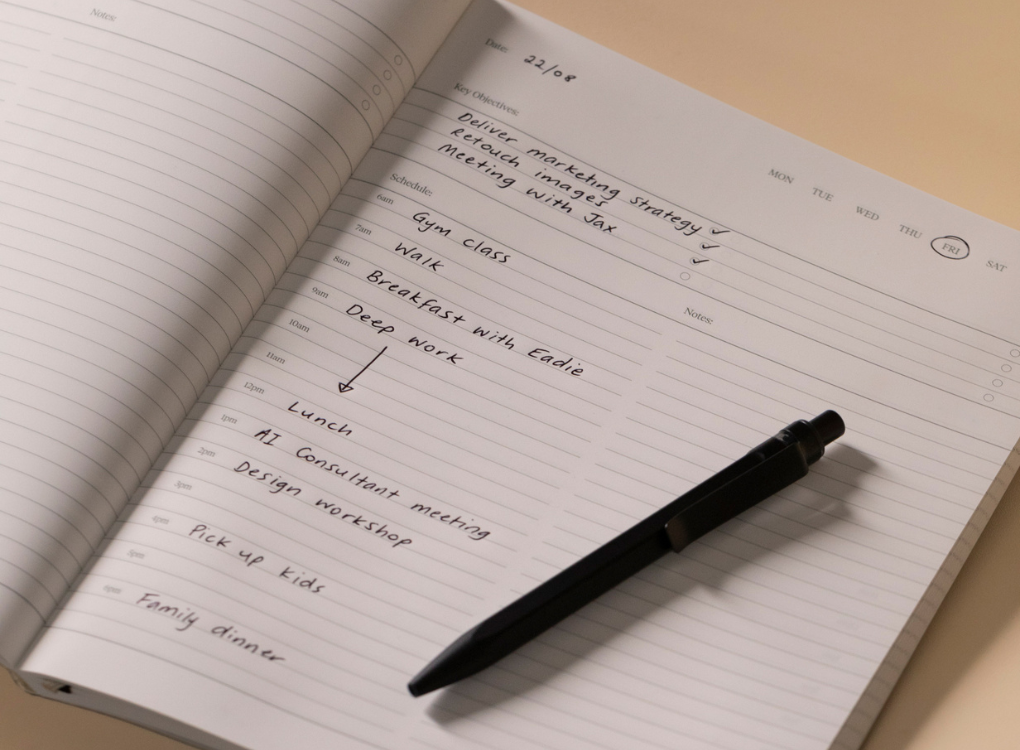 Notes:
Date: 22/08
MON TUE WED THU FRI SAT
Key Objectives:
Deliver marketing strategy ✓
Retouch images ✓
Meeting with Jax ✓
Schedule:
6am Gym class
7am Walk
8am Breakfast with Eadie
9am Deep work
10am
11am
12pm Lunch
1pm AI Consultant meeting
2pm Design workshop
3pm
4pm Pick up kids
5pm
6pm Family dinner
Notes: